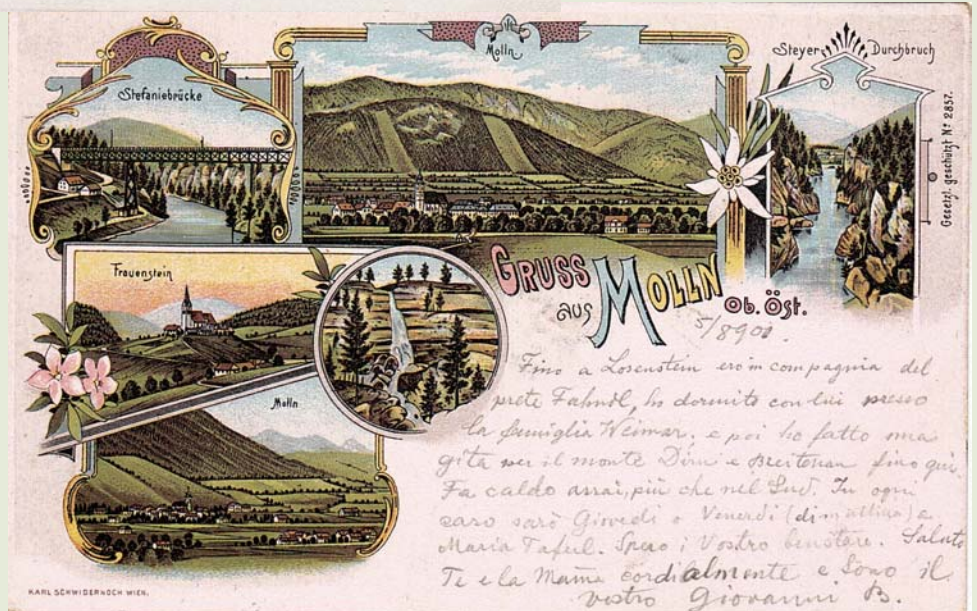 Molln.
Stefaniebrücke
Steyer Durchbruch
Gesetzl. geschützt Nº 2857.
Frauenstein
GRUSS
aus MOLLN
Ob. Öst.
Molln
5/8 90
Fino a Losenstein ero in compagnia del
prete Fahndl, ho dormito con lui presso
la famiglia Weimar, e poi ho fatto una
gita per il monte Dirn e Breitenau fino qui
Fa caldo assai, più che nel Sud. In ogni
caso sarò Giovedi o Venerdi (di mattina) a
Maria Taferl. Spero i Vostro benstare. Saluto
Te e la Mama cordialmente e sono il
vostro Giovanni B.
KARL SCHWIDERNOCH WIEN.